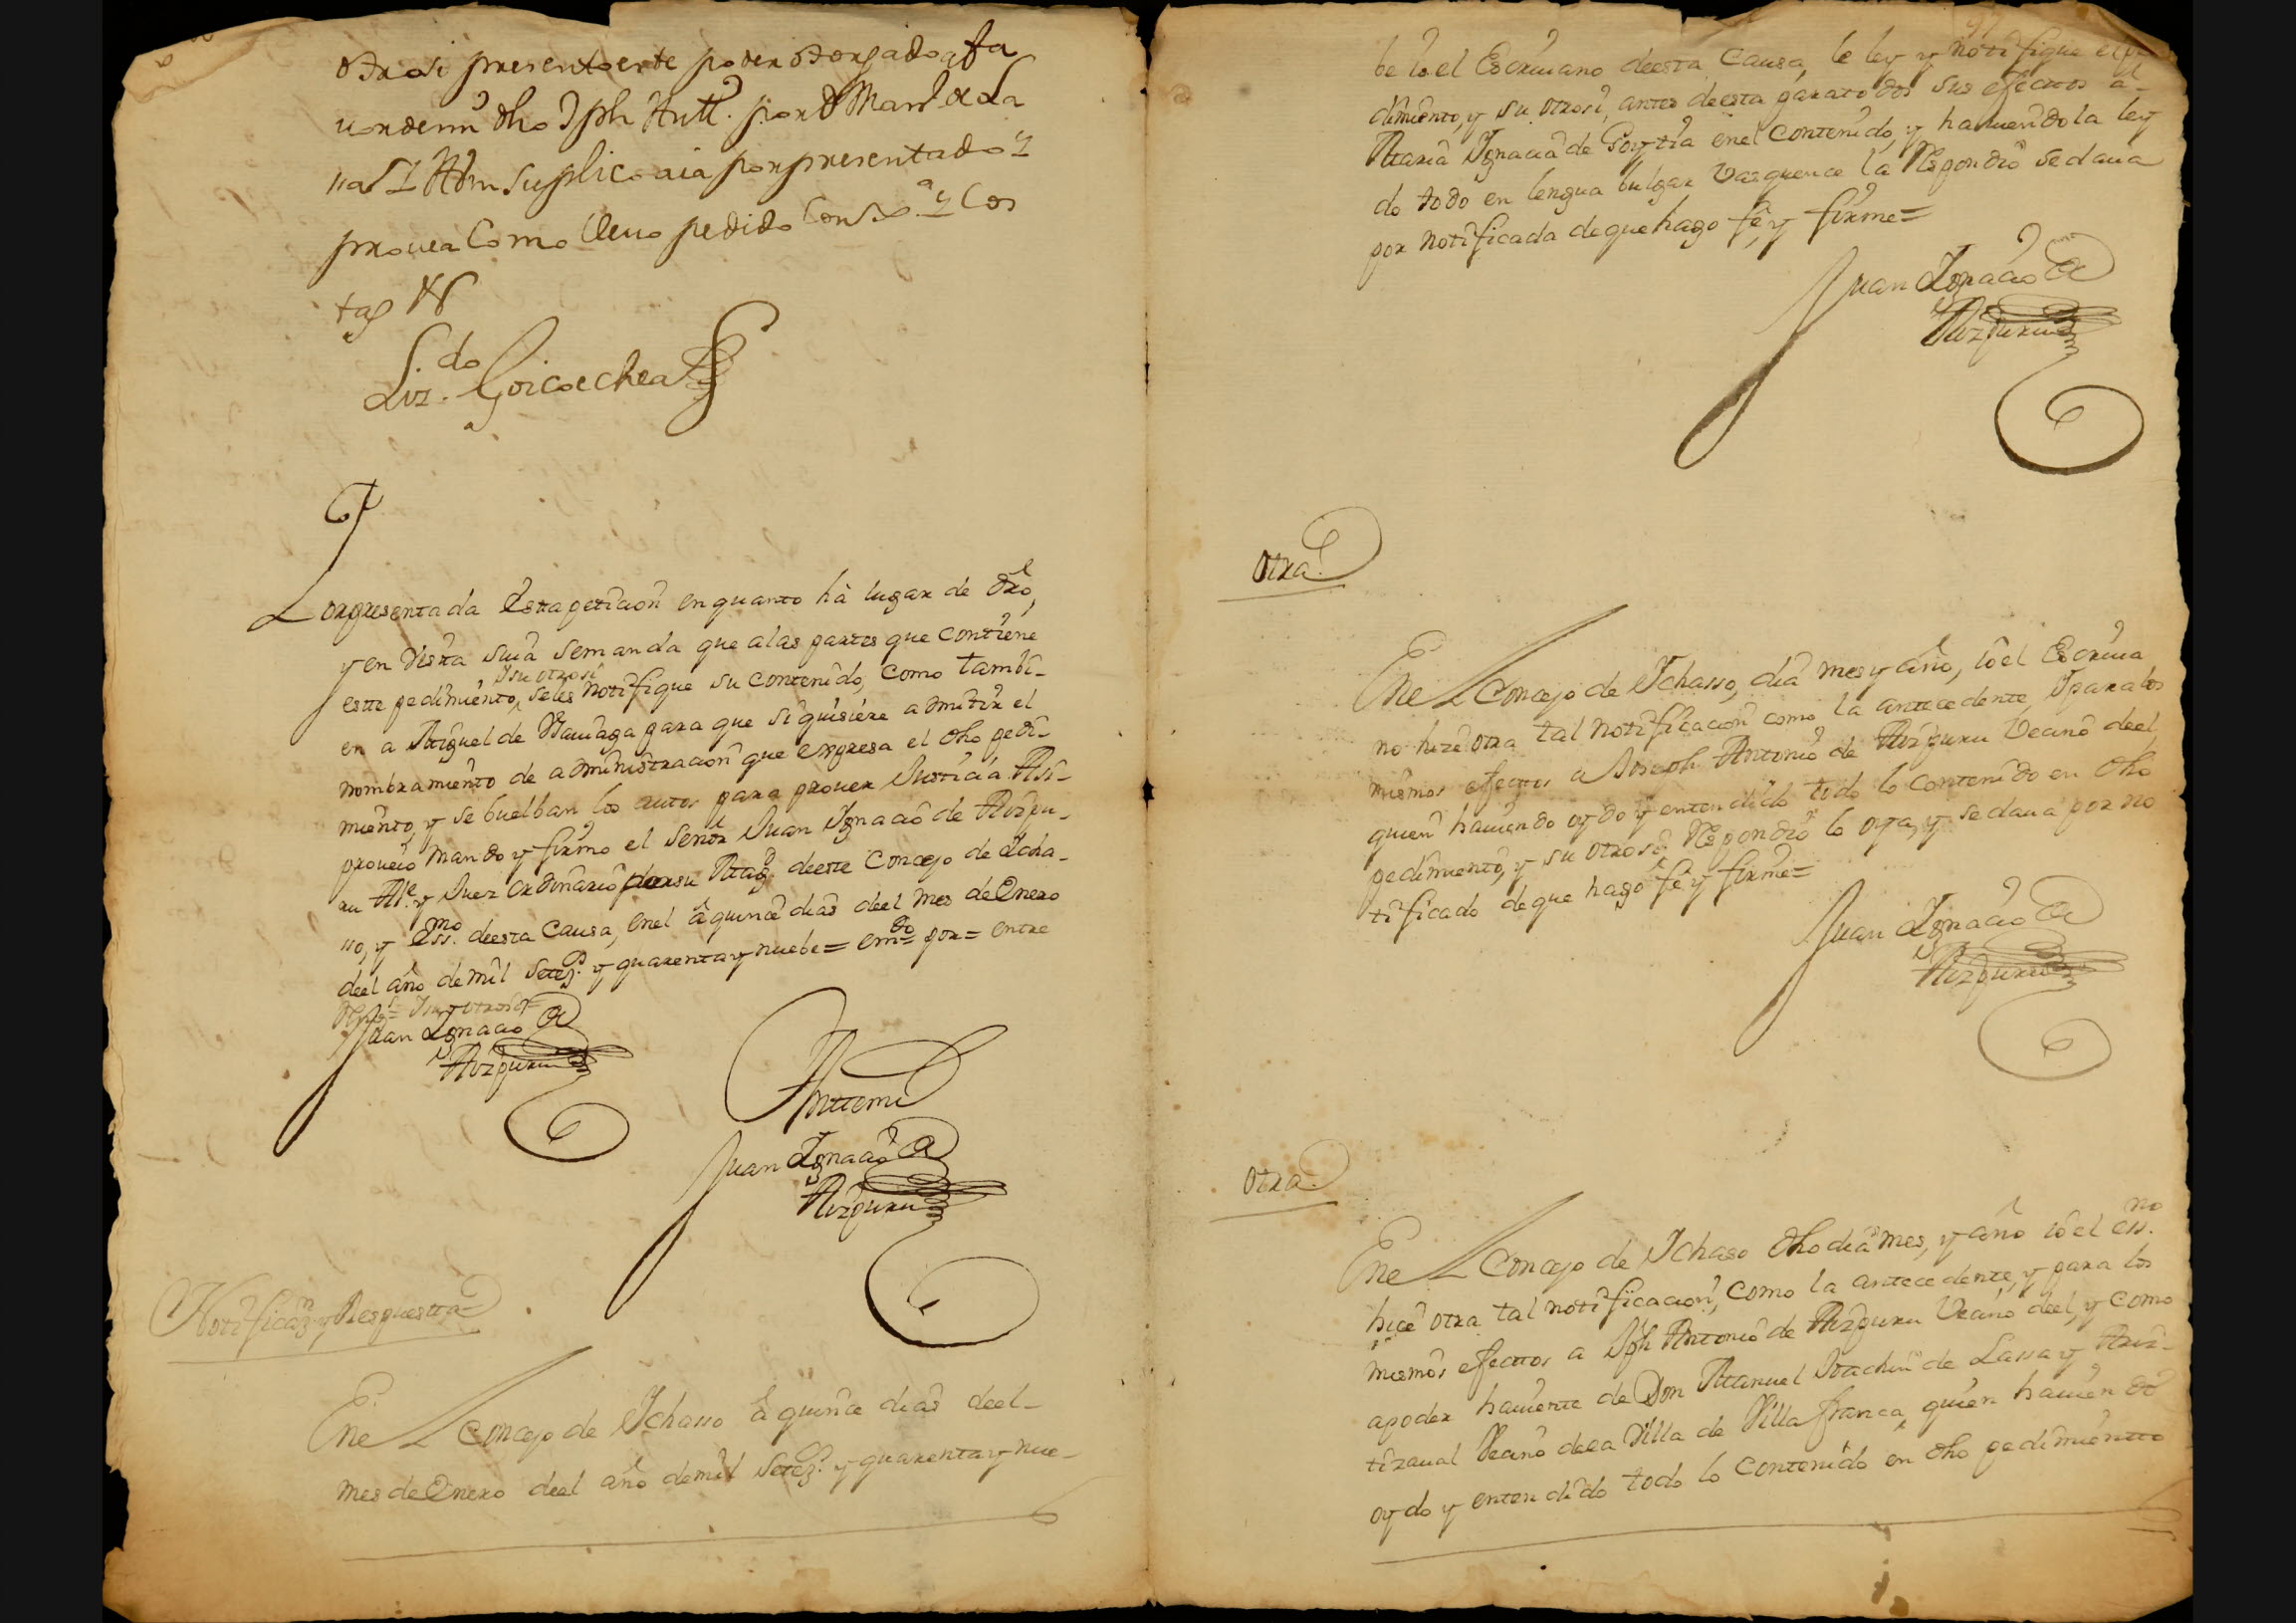 otrosi presento este poder otorgado a fa
uor de mi dho Jph Antt.º por D Man.l de La
ssa J A Vm suplico aia por presentado y
prouea Como lleuo pedido Con Just.a y Cos
tas &
Liz.do Goicoechea
Por presentada Esta peticion en quanto hà lugar de dro,
y en Vista suia se manda que a las partes que contiene
este pedimiento, Y su otrosi se les notifique su contenido, como tambi-
en a Miguel de para que si quisiere admitir el
nombramiento de administracion que expresa el dho pedi-
miento, y se buelban los autos para prouer Justicia Assi-
proueio mando y firmo el Senor Juan Ignacio de Aizpu-
ru Al.e y Juez ordinario por su Mag.d de este Concejo de Icha-
sso, y Ess.no de esta Causa, en el â quince dias de el mes de Enero
de el año de mil Setez.s y quarenta y nuebe = em.do = por = entre
Rengs = Y su otrosi =
Juan Ignacio de
Aizpuru
Ante mi
Juan Ignacio de
Aizpuru
Notificaz.n y Respuestta
En el Concejo de Ichasso â quince dias de el-
mes de Enero de el año de mil Setez.s y quarenta y nue-
be Io el Escriuano de esta Causa, le ley y notifique el pe
dimiento, y su otrosi, antes de esta para todos sus efectos a-
Maria Ignacia de en el contenido, y hauiendola ley
do todo en lengua bulgar Vasquence la Respondio se daua
por notificada de que hago fê, y firme =
Juan Ignacio de
Aizpuru
otra
En el Concejo de Ichasso, dia mes y año, iô el Escriua
no hize otra tal notificacion como la antecedente, Y para los
mismos efectos a Joseph Antonio de Aizpuru Vecino de el,
quien hauiendo oydo y entendido todo lo contenido en dho
pedimiento, y su otrosi, Respondio lo oya, y se daua por no
tificado de que hago fê y firme =
Juan Ignacio de
Aizpuru
otra
En el Concejo de Ichaso dho dia mes, y año iô el ess.no
hice otra tal notificacion, como la antecedente, y para los
mismos efectos a Jph Antonio de Aizpuru Vecino de el, y como
apoder hauiente de Don Manuel Joachin de Lassa y Ariz-
tizaual Vecino de la Villa de Villa franca, quien hauiendo
oydo y entendido todo lo contenido en dho pedimientto